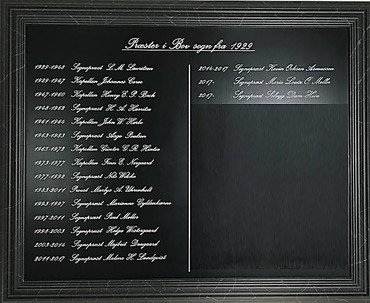 Præster i Bov sogn fra 1929
1929-1948 Sognepræst L. M. Lauritsen
1939-1947 Kapellan Johannes
1947-1960 Kapellan Henry E. P. Bach
1948-1963 Sognepræst H. A.
1961-1964 Kapellan John W.
1963-1983 Sognepræst Aage Poulsen
1965-1973 Kapellan Günter C. R.
1973-1977 Kapellan Finn E. Nørgaard
1977-1992 Sognepræst Nils
1983-2011 Provst Marlys A.
1993-1997 Sognepræst Marianne Gyldenkærne
1997-2011 Sognepræst Poul Møller
1998-2003 Sognepræst Helga Westergaard
2003-2014 Sognepræst Majbrit Daugaard
2011-2017 Sognepræst Malene H. Lundqvist
2014-2017 Sognepræst Karin Ochsen Asmussen
2017- Sognepræst Maria Louise O. Møller
2017- Sognepræst Solvejg Dam-Hein